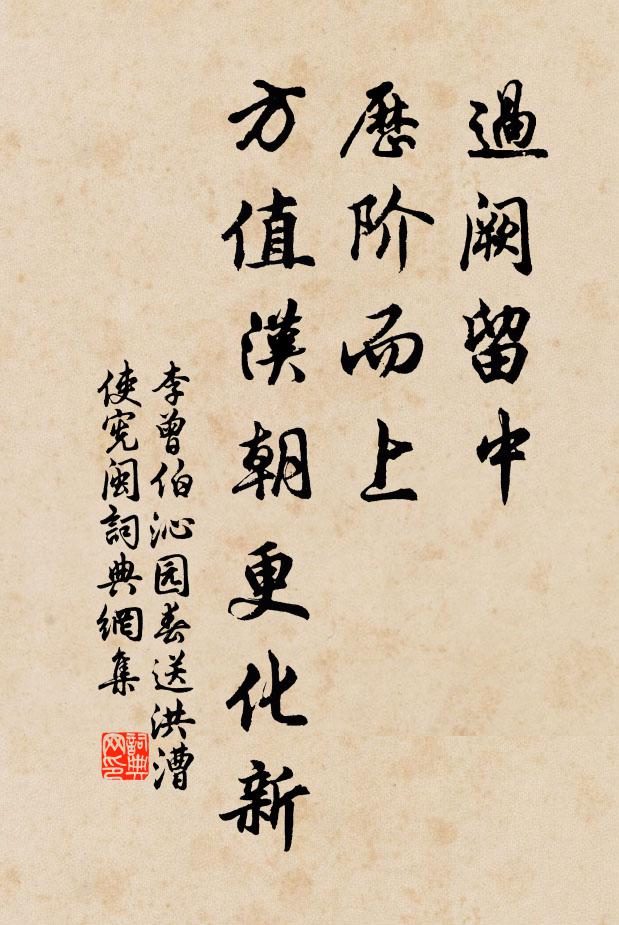 過阙留中
歷阶而上
方值漢朝更化新
李曾伯沁园春送洪漕
使宪闽詞典網集
詞典网印